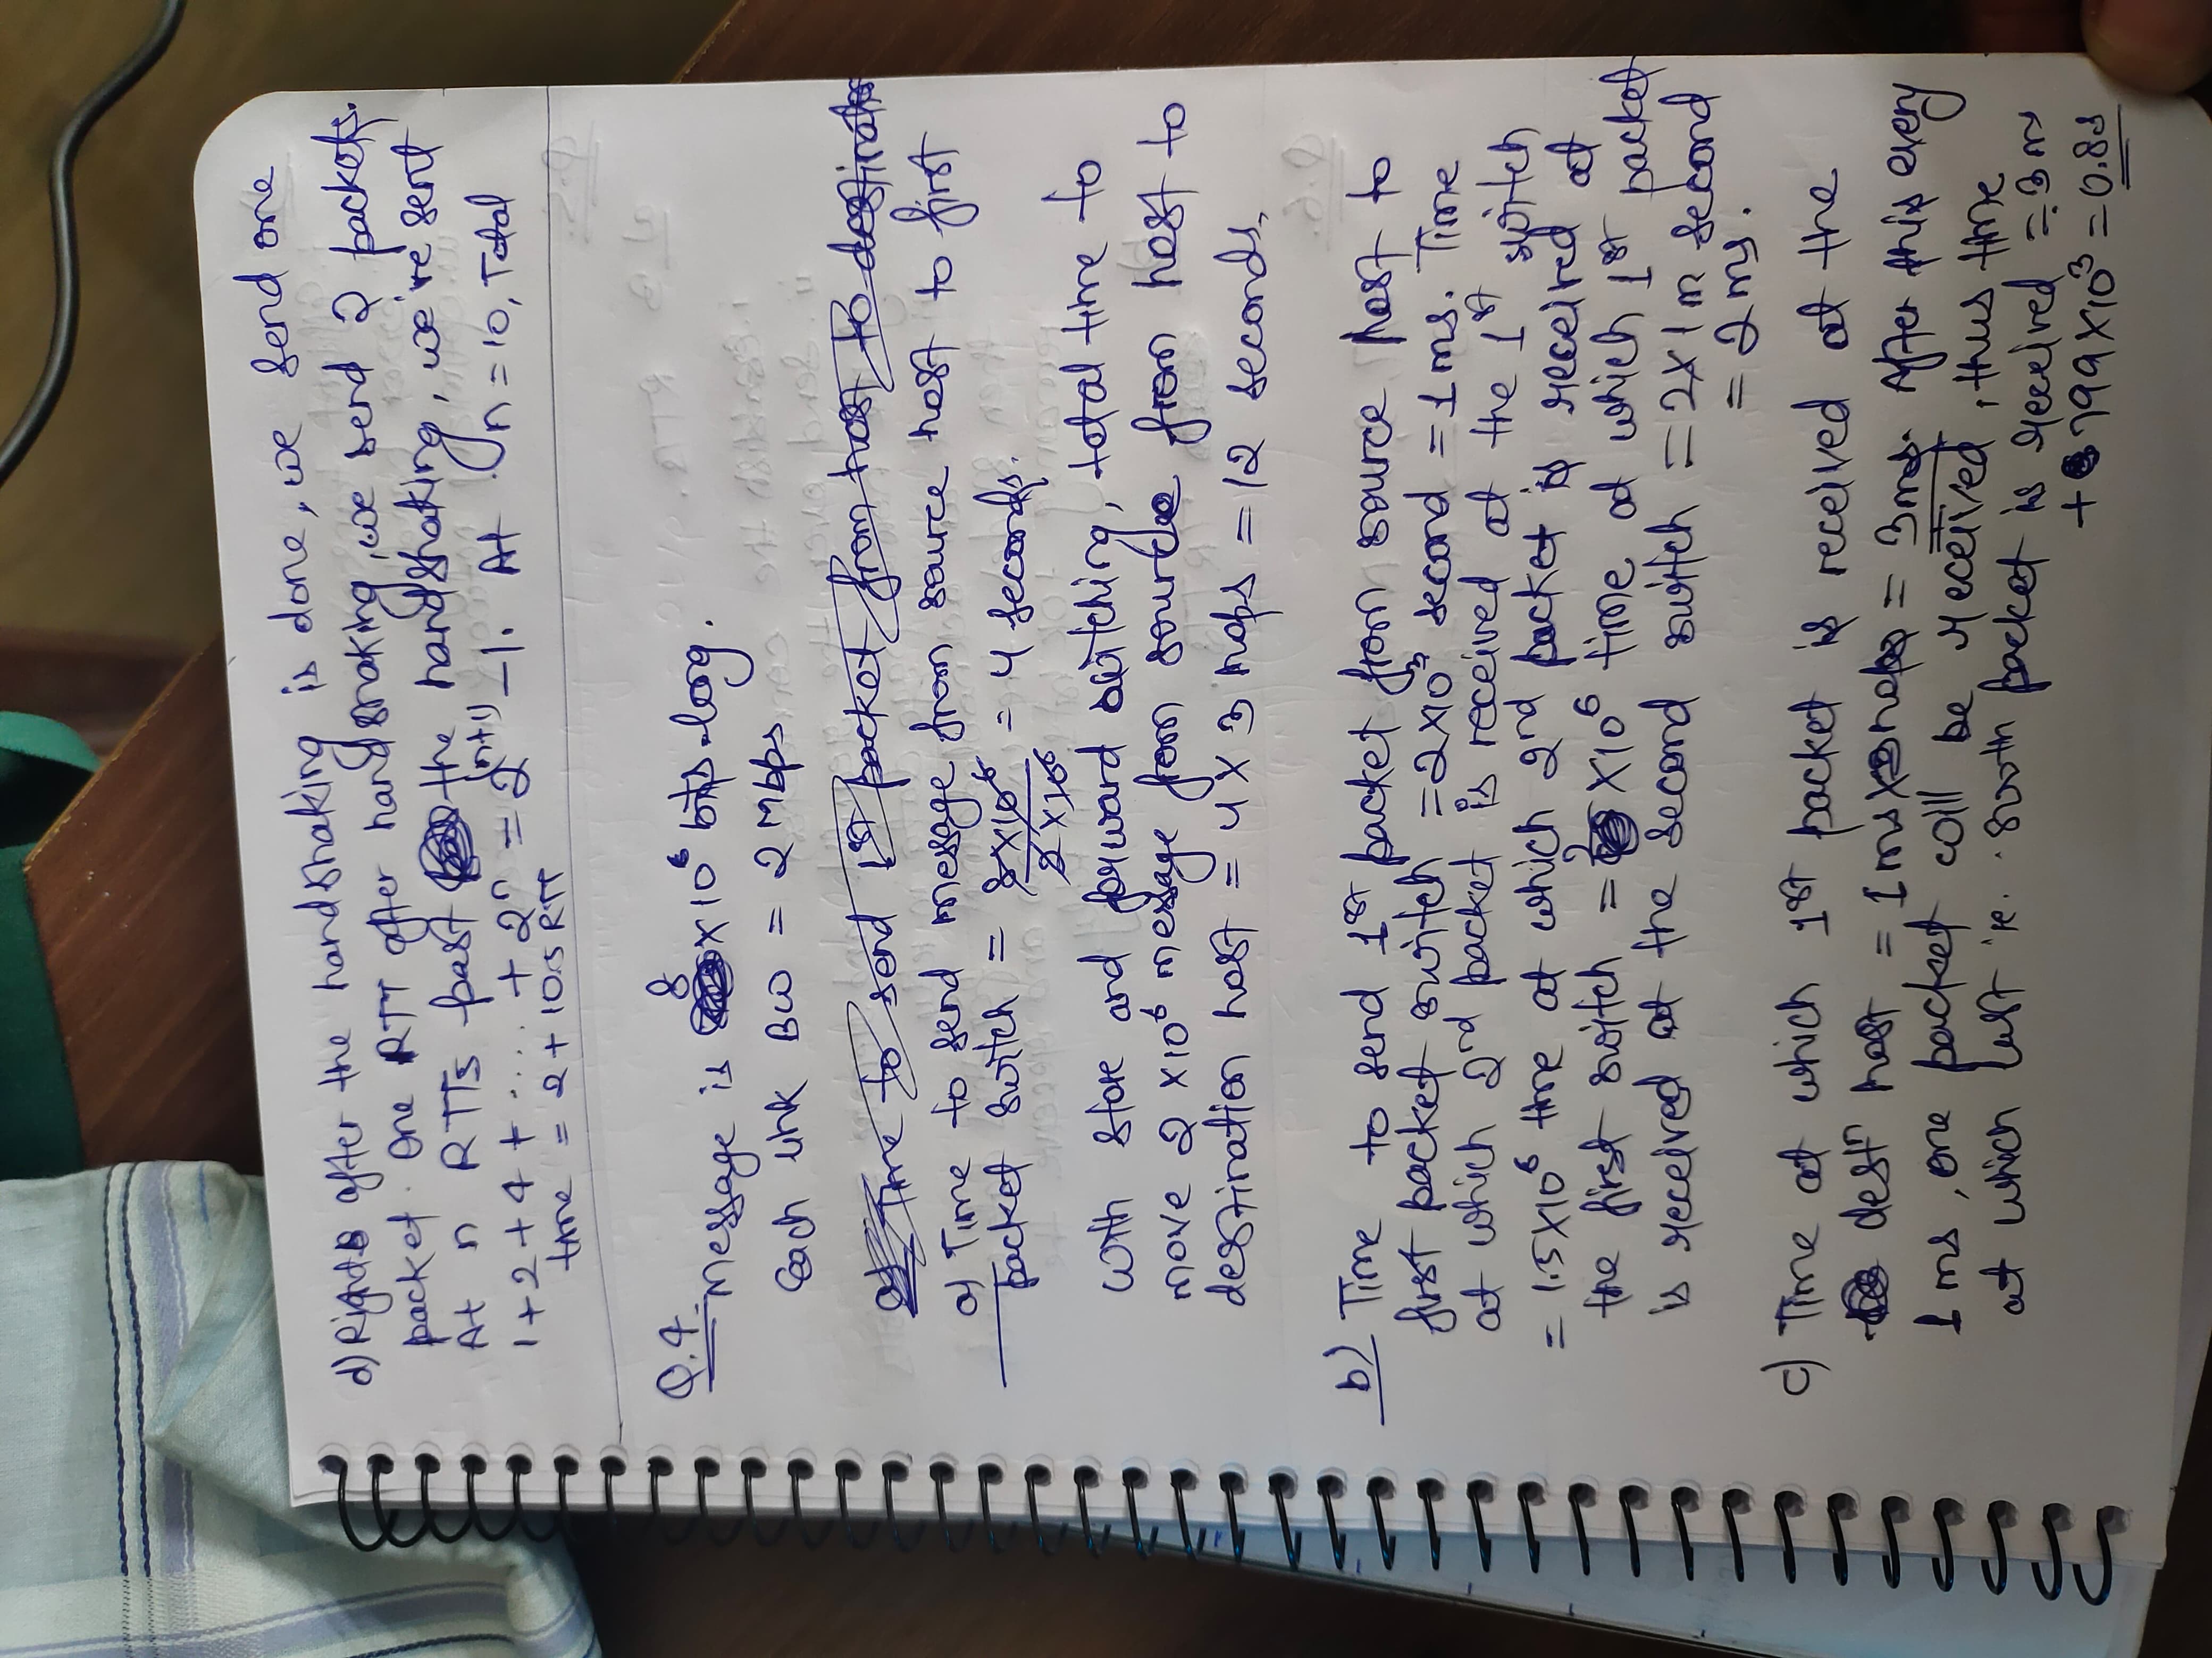 d) Right after the handshaking is done, we send one
packet. One RTT after handshaking, we send 2 packets.
At n RTTs past the handshaking, we're sent
1+2+4+.....+2^n = 2^(n+1) -1. At n=10, Total
time = 2+10.5 RTT
Q.4.
Message is 8×10^6 bits long.
Each link BW = 2 Mbps
a) Time to send 1st packet from host to destination
a) Time to send message from source host to first
packet switch = 8×10^6 / 2×10^6 = 4 seconds.
With store and forward switching, total time to
move 2×10^6 message from source from host to
destination host = 4×3 hops = 12 seconds.
b) Time to send 1st packet from source host to
first packet switch = 2×10^3 second = 1ms. Time
at which 2nd packet is received at the 1st switch
= 1.5×10^6 time at which 2nd packet is received at
the first switch = 2×10^6 time at which 1st packet
is received at the second switch = 2×1m second
= 2ms.
c) Time at which 1st packet is received at the
destn host = 1ms×3hops = 3ms. After this every
1ms, one packet will be received, thus time
at which last ie. 800th packet is received = 3ms
+ 799×10^3 = 0.8s